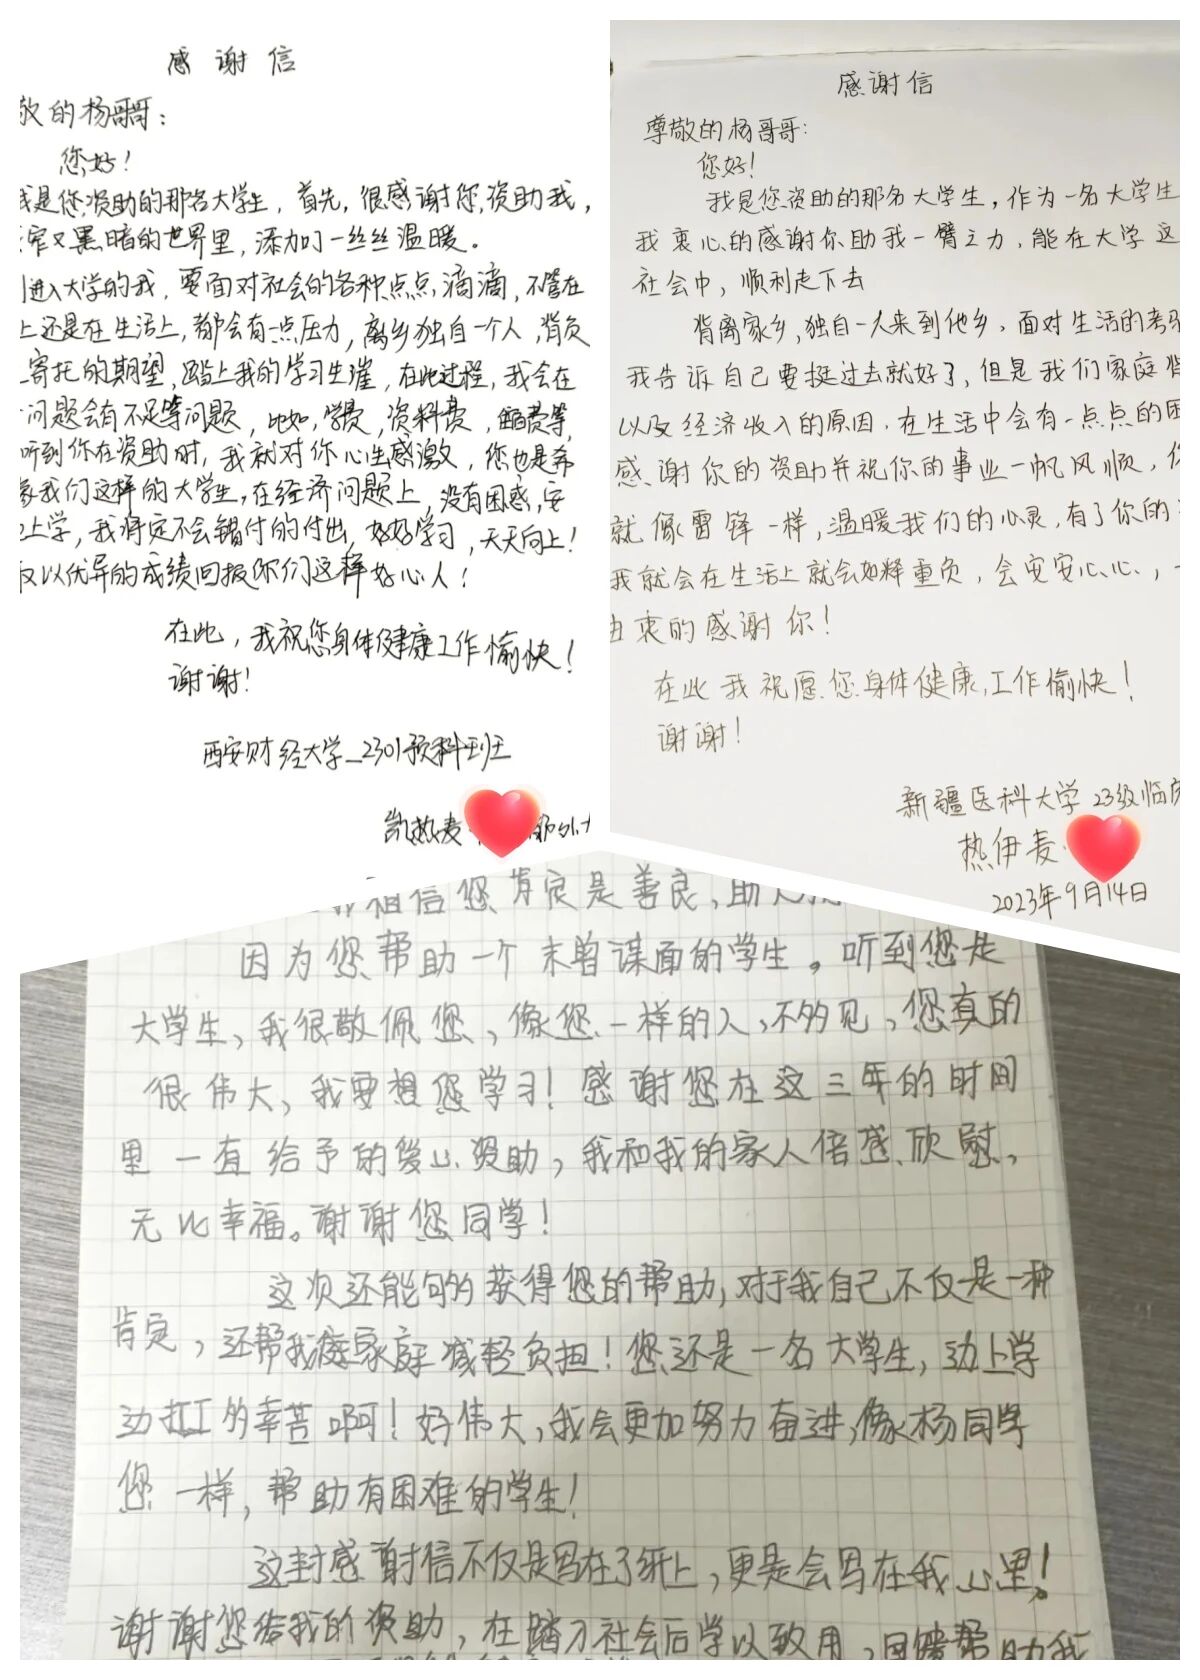 感谢信
敬的杨哥哥：
您好！
我是您资助的那名大学生，首先，很感谢您资助我，
窄又黑暗的世界里，添加了一丝丝温暖。
进入大学的我，要面对社会的各种点点滴滴，不管在
上还是在生活上，都会有一点压力，离乡独自一个人，背负
寄托的期望，踏上我的学习生涯，在此过程，我会在
问题会有不足等问题，比如，学费，资料费，等，
听到你在资助时，我就对你心生感激，您也是希
我们这样的大学生，在经济问题上，没有困惑，安
上学，我将定不会错付的付出，好好学习，天天向上！
以优异的成绩回报你们这样好心人！
在此，我祝您身体健康工作愉快！
谢谢！
西安财经大学_2301预科班
凯热麦
感谢信
尊敬的杨哥哥：
您好！
我是您资助的那名大学生，作为一名大学生
我衷心的感谢你助我一臂之力，能在大学这
社会中，顺利走下去
背离家乡，独自一人来到他乡，面对生活的考
我告诉自己要挺过去就好了，但是我们家庭
以及经济收入的原因，在生活中会有一点点的困
感谢你的资助并祝你的事业一帆风顺，你
就像雷锋一样，温暖我们的心灵，有了你的
我就会在生活上就会如释重负，会安安心心，一
由衷的感谢你！
在此我祝愿您身体健康，工作愉快！
谢谢！
新疆医科大学23级临床
热伊麦·
2023年9月14日
相信您肯定是善良，助人
因为您帮助一个未曾谋面的学生。听到您是
大学生，我很敬佩您，像您一样的人，不多见，您真的
很伟大，我要想您学习！感谢您在这三年的时间
里一直给予的爱心资助，我和我的家人倍感欣慰，
无比幸福。谢谢您同学！
这次还能够获得您的帮助，对于我自己不仅是一种
肯定，还帮我家庭减轻负担！您还是一名大学生，边上学
边打工的辛苦啊！好伟大，我会更加努力奋进，像杨同学
您一样，帮助有困难的学生！
这封感谢信不仅是写在了纸上，更是会写在我心里！
谢谢您给我的资助，在踏入社会后学以致用，回馈帮助我